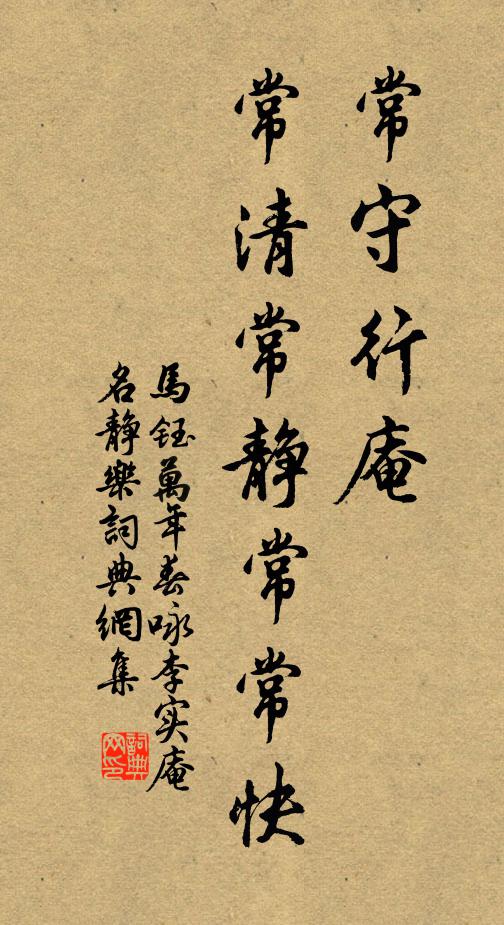 常守行庵
常清常静常常快
馬鈺萬年春咏李实庵
名静樂詞典網集
詞典网印